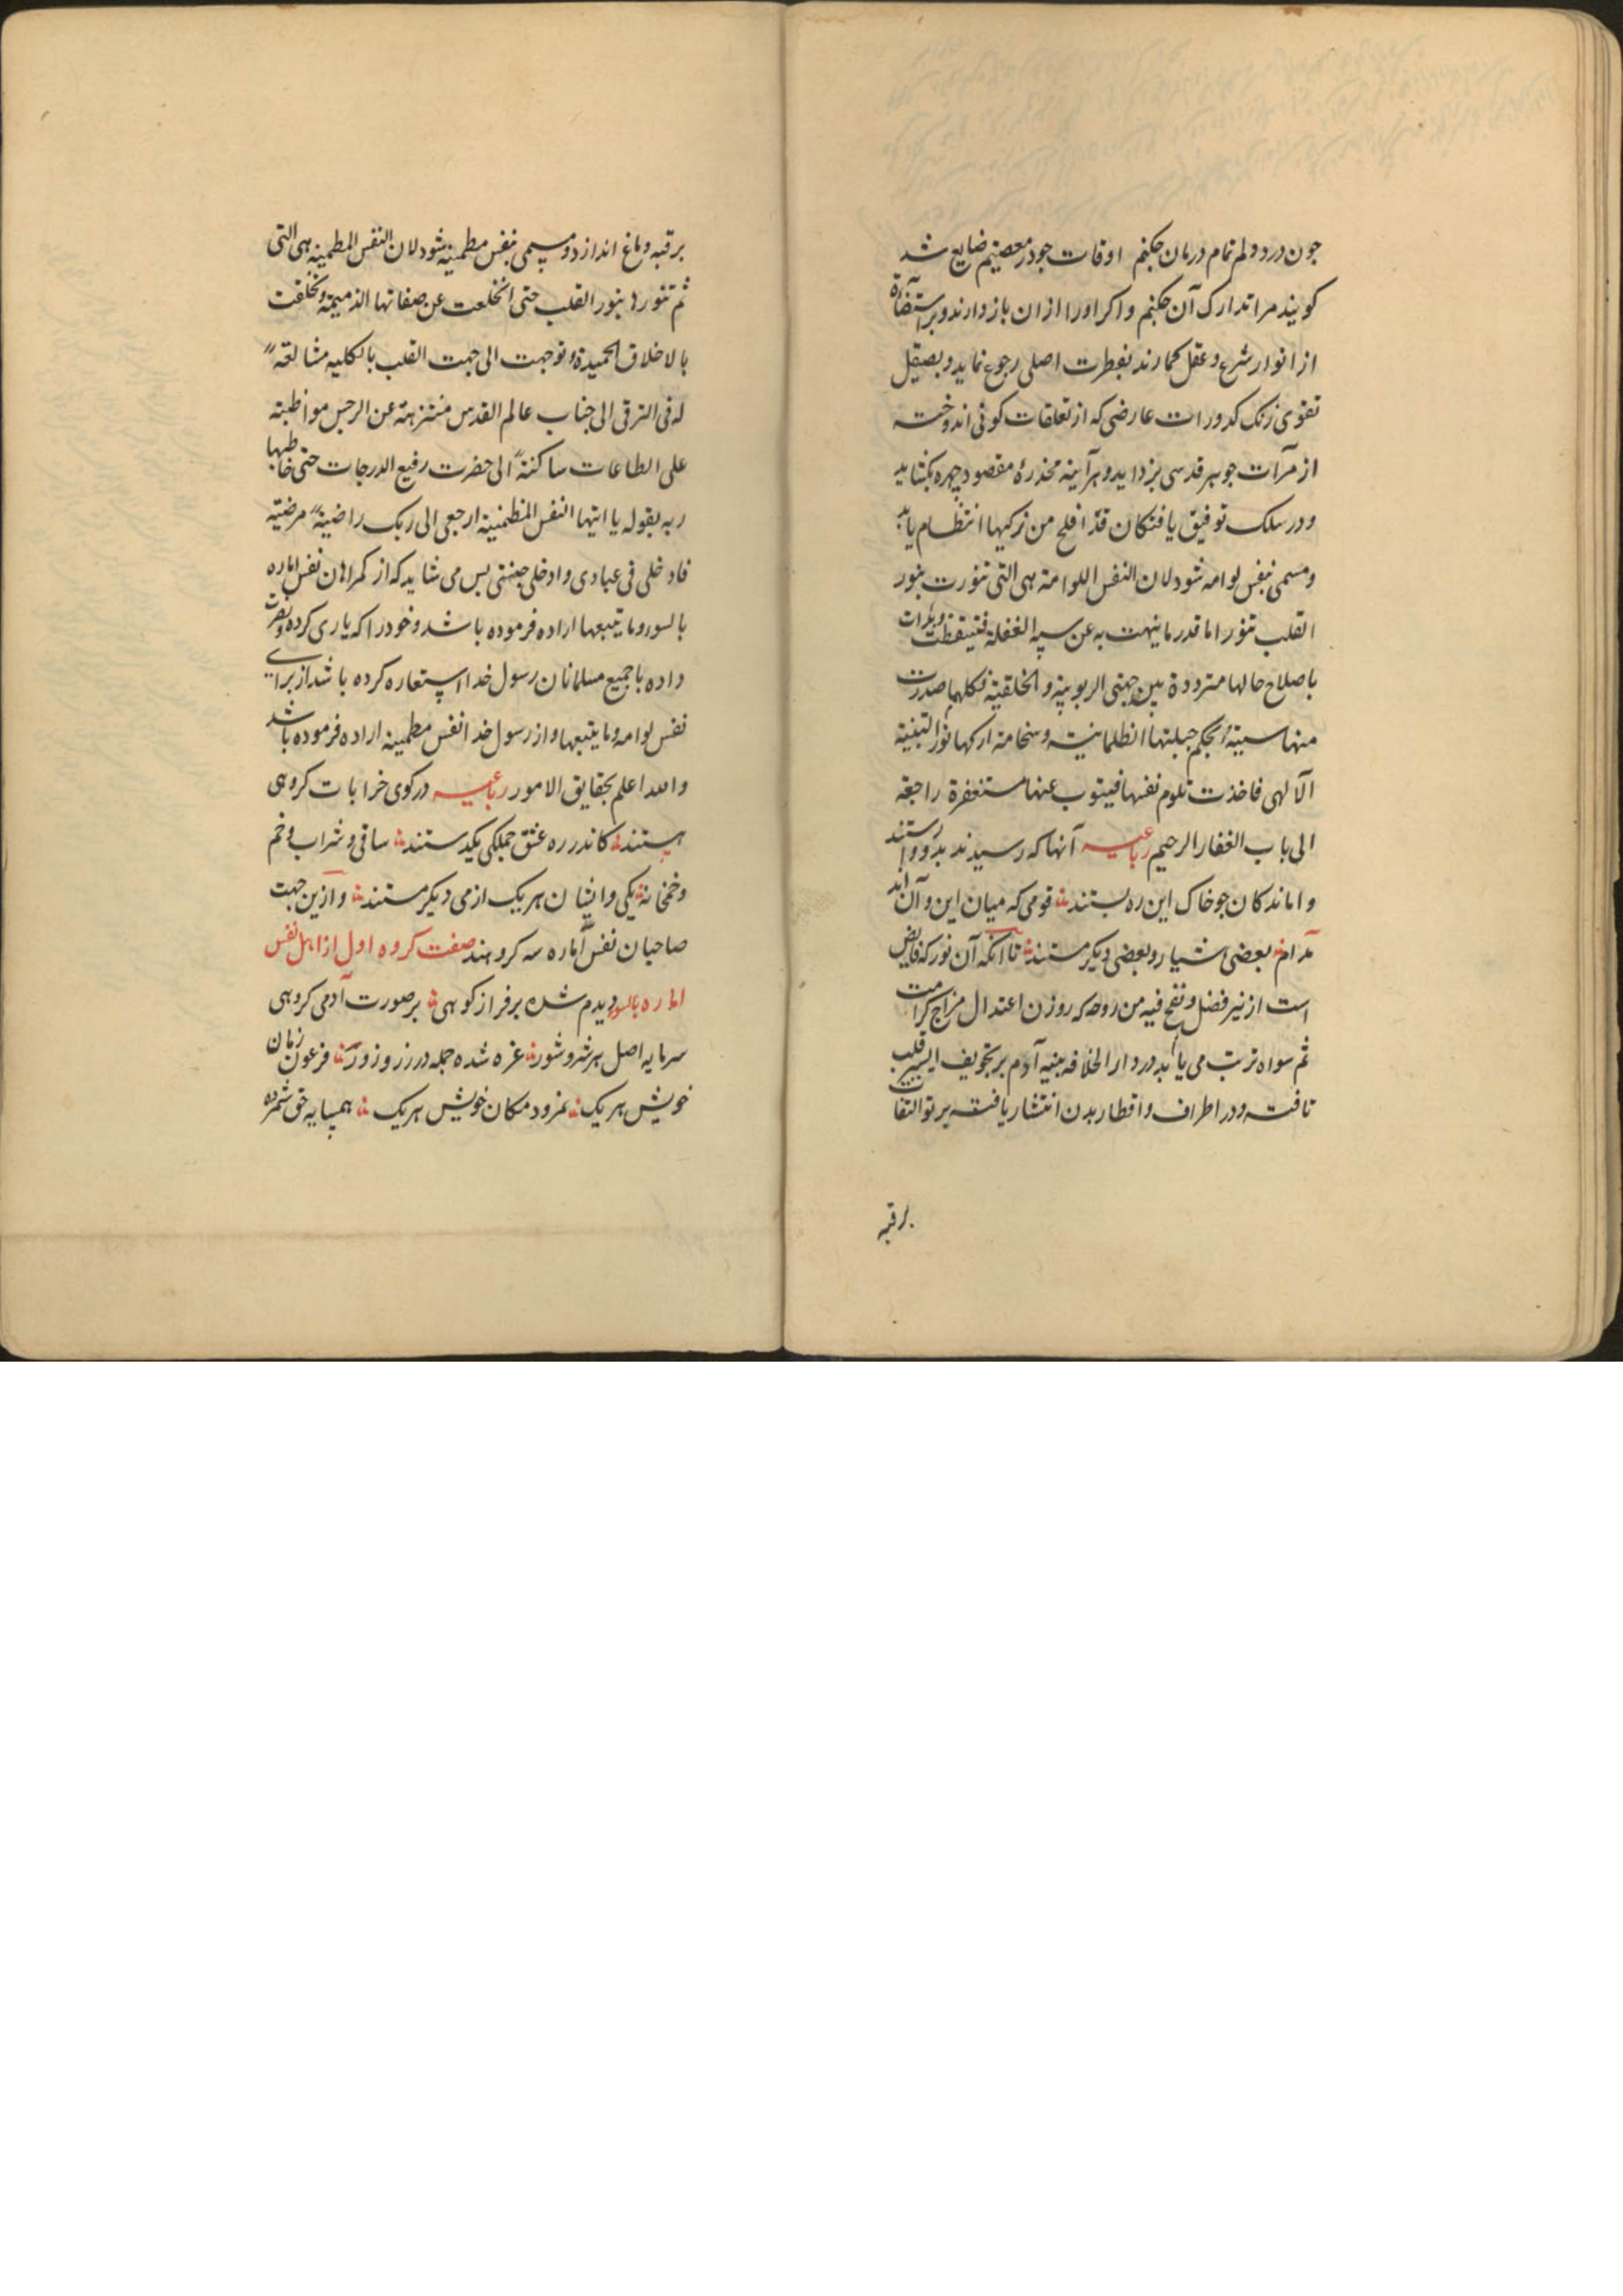 چون درد دلم تمام درمان چکنم اوقات چو در معصیتم ضایع شد
کویند مرا تدارک آن چکنم و اکر او را از ان باز دارند و بر استضآءة
از انوار شرع و عقل کمارند بفطرت اصلی رجوع نماید و بصیقل
تقوی زنک کدورات عارضی که از تعلقات کونی اندوخته
از مرآت جوهر قدسی بزداید و هر آینه مخدرهٔ مقصود چهره بکشاید
و در سلک توفیق یافتکان قد افلح من زکیها انتظام یابد
و مسمی بنفس لوامه شود لان النفس اللوامة هی التی تنورت بنور
القلب تنورا ما قدر ما ینهت به عن سنة الغفلة فتیقظت و بدات
باصلاح حالها مترددة بین جهتی الربوبیة و الخلقیة فکلما صدرت
منها سیئة بحکم جبلتها الظلمانیة و سنحا منه ارکها نور التنبیه
الآلهی فاخذت تلوم نفسها فیتوب عنها مستغفرة راجعة
الی باب الغفار الرحیم رباعیه آنها که رسیدند بدو وارستند
و اماندکان چو خاک این ره بستند قومی که میان این و آن اند
مدام بعضی هشیار و بعضی دیکر مستند تا آنکه آن نور که فایض
است از نیر فضل و نفخ فیه من روحه که روزن اعتدال مزاج کرامت
ثم سواه تربت می یابد در دار الخلافه بنیه آدم بر تجویف ایسر قلب
تافته و در اطراف و اقطار بدن انتشار یافته پرتو التفات
برقبه
برقبه دماغ اندازد و مسمی بنفس مطمینه شود لان النفس المطمینه هی التی
ثم تنورها بنور القلب حتی انخلعت عن صفاتها الذمیمة و تخلقت
بالاخلاق الحمیدة و توجهت الی جهت القلب بالکلیه مشالعة
له فی الترقی الی جناب عالم القدس متنزهة عن الرجس مواظبة
علی الطاعات ساکنة الی حضرت رفیع الدرجات حتی خاطبها
ربه بقوله یا ایتها النفس المطمئنة ارجعی الی ربک راضیة مرضیة
فادخلی فی عبادی و ادخلی جنتی پس می شاید که از کمراهان نفس اماره
بالسو و ما یتبعها اراده فرموده باشد و خود را که یاری کرده و نصرت
داده با جمیع مسلمانان رسول خدا استعاره کرده باشد از برای
نفس لوامه و ما یتبعها و از رسول خدا نفس مطمینه اراده فرموده باشد
و الله اعلم بحقایق الامور رباعیه در کوی خرابات کروهی
هستند کاندر ره عشق جملکی یکدستند ساقی و شراب و خم
و خمخانه یکی و ایشان هر یک از می دیکر مستند و ازین جهت
صاحبان نفس اماره سه کروهند صفت کروه اول از اهل نفس
اماره بالسو دیدم شده بر فراز کوهی بر صورت آدمی کروهی
سرمایه اصل هر شر و شور غره شده جمله در زر و زور فرعون زمان
خویش هر یک نمرود مکان خویش هر یک همسایه حق شمرده